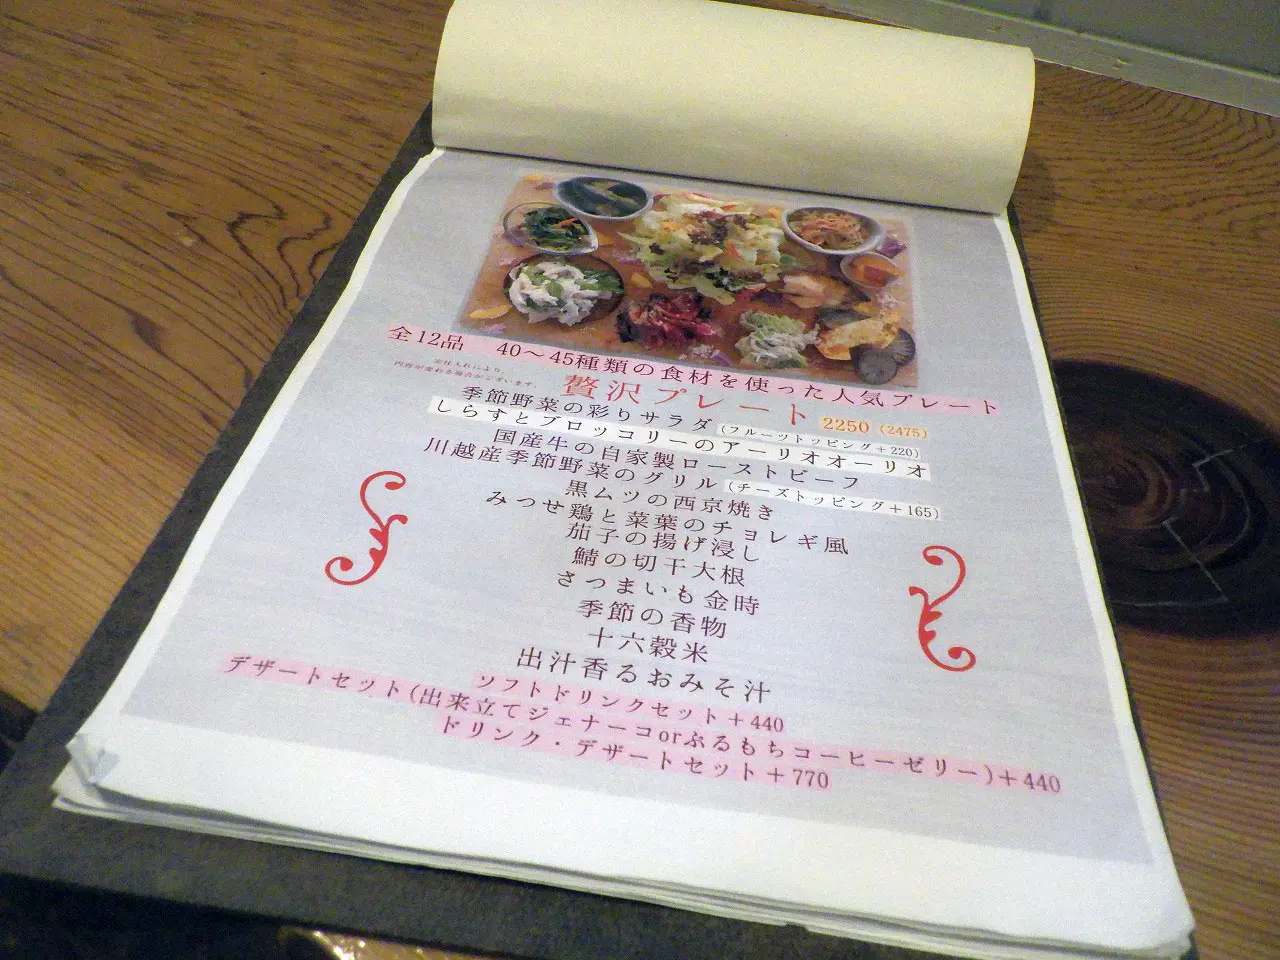 全12品　40〜45種類の食材を使った人気プレート
※仕入れにより、
内容が変わる場合がございます。
贅沢プレート 2250（2475）
季節野菜の彩りサラダ（フルーツトッピング＋220）
しらすとブロッコリーのアーリオオーリオ
国産牛の自家製ローストビーフ
川越産季節野菜のグリル（チーズトッピング＋165）
黒ムツの西京焼き
みつせ鶏と菜葉のチョレギ風
茄子の揚げ浸し
鯖の切干大根
さつまいも金時
季節の香物
十六穀米
出汁香るおみそ汁
ソフトドリンクセット＋440
デザートセット(出来立てジェナーコorぷるもちコーヒーゼリー)＋440
ドリンク・デザートセット＋770